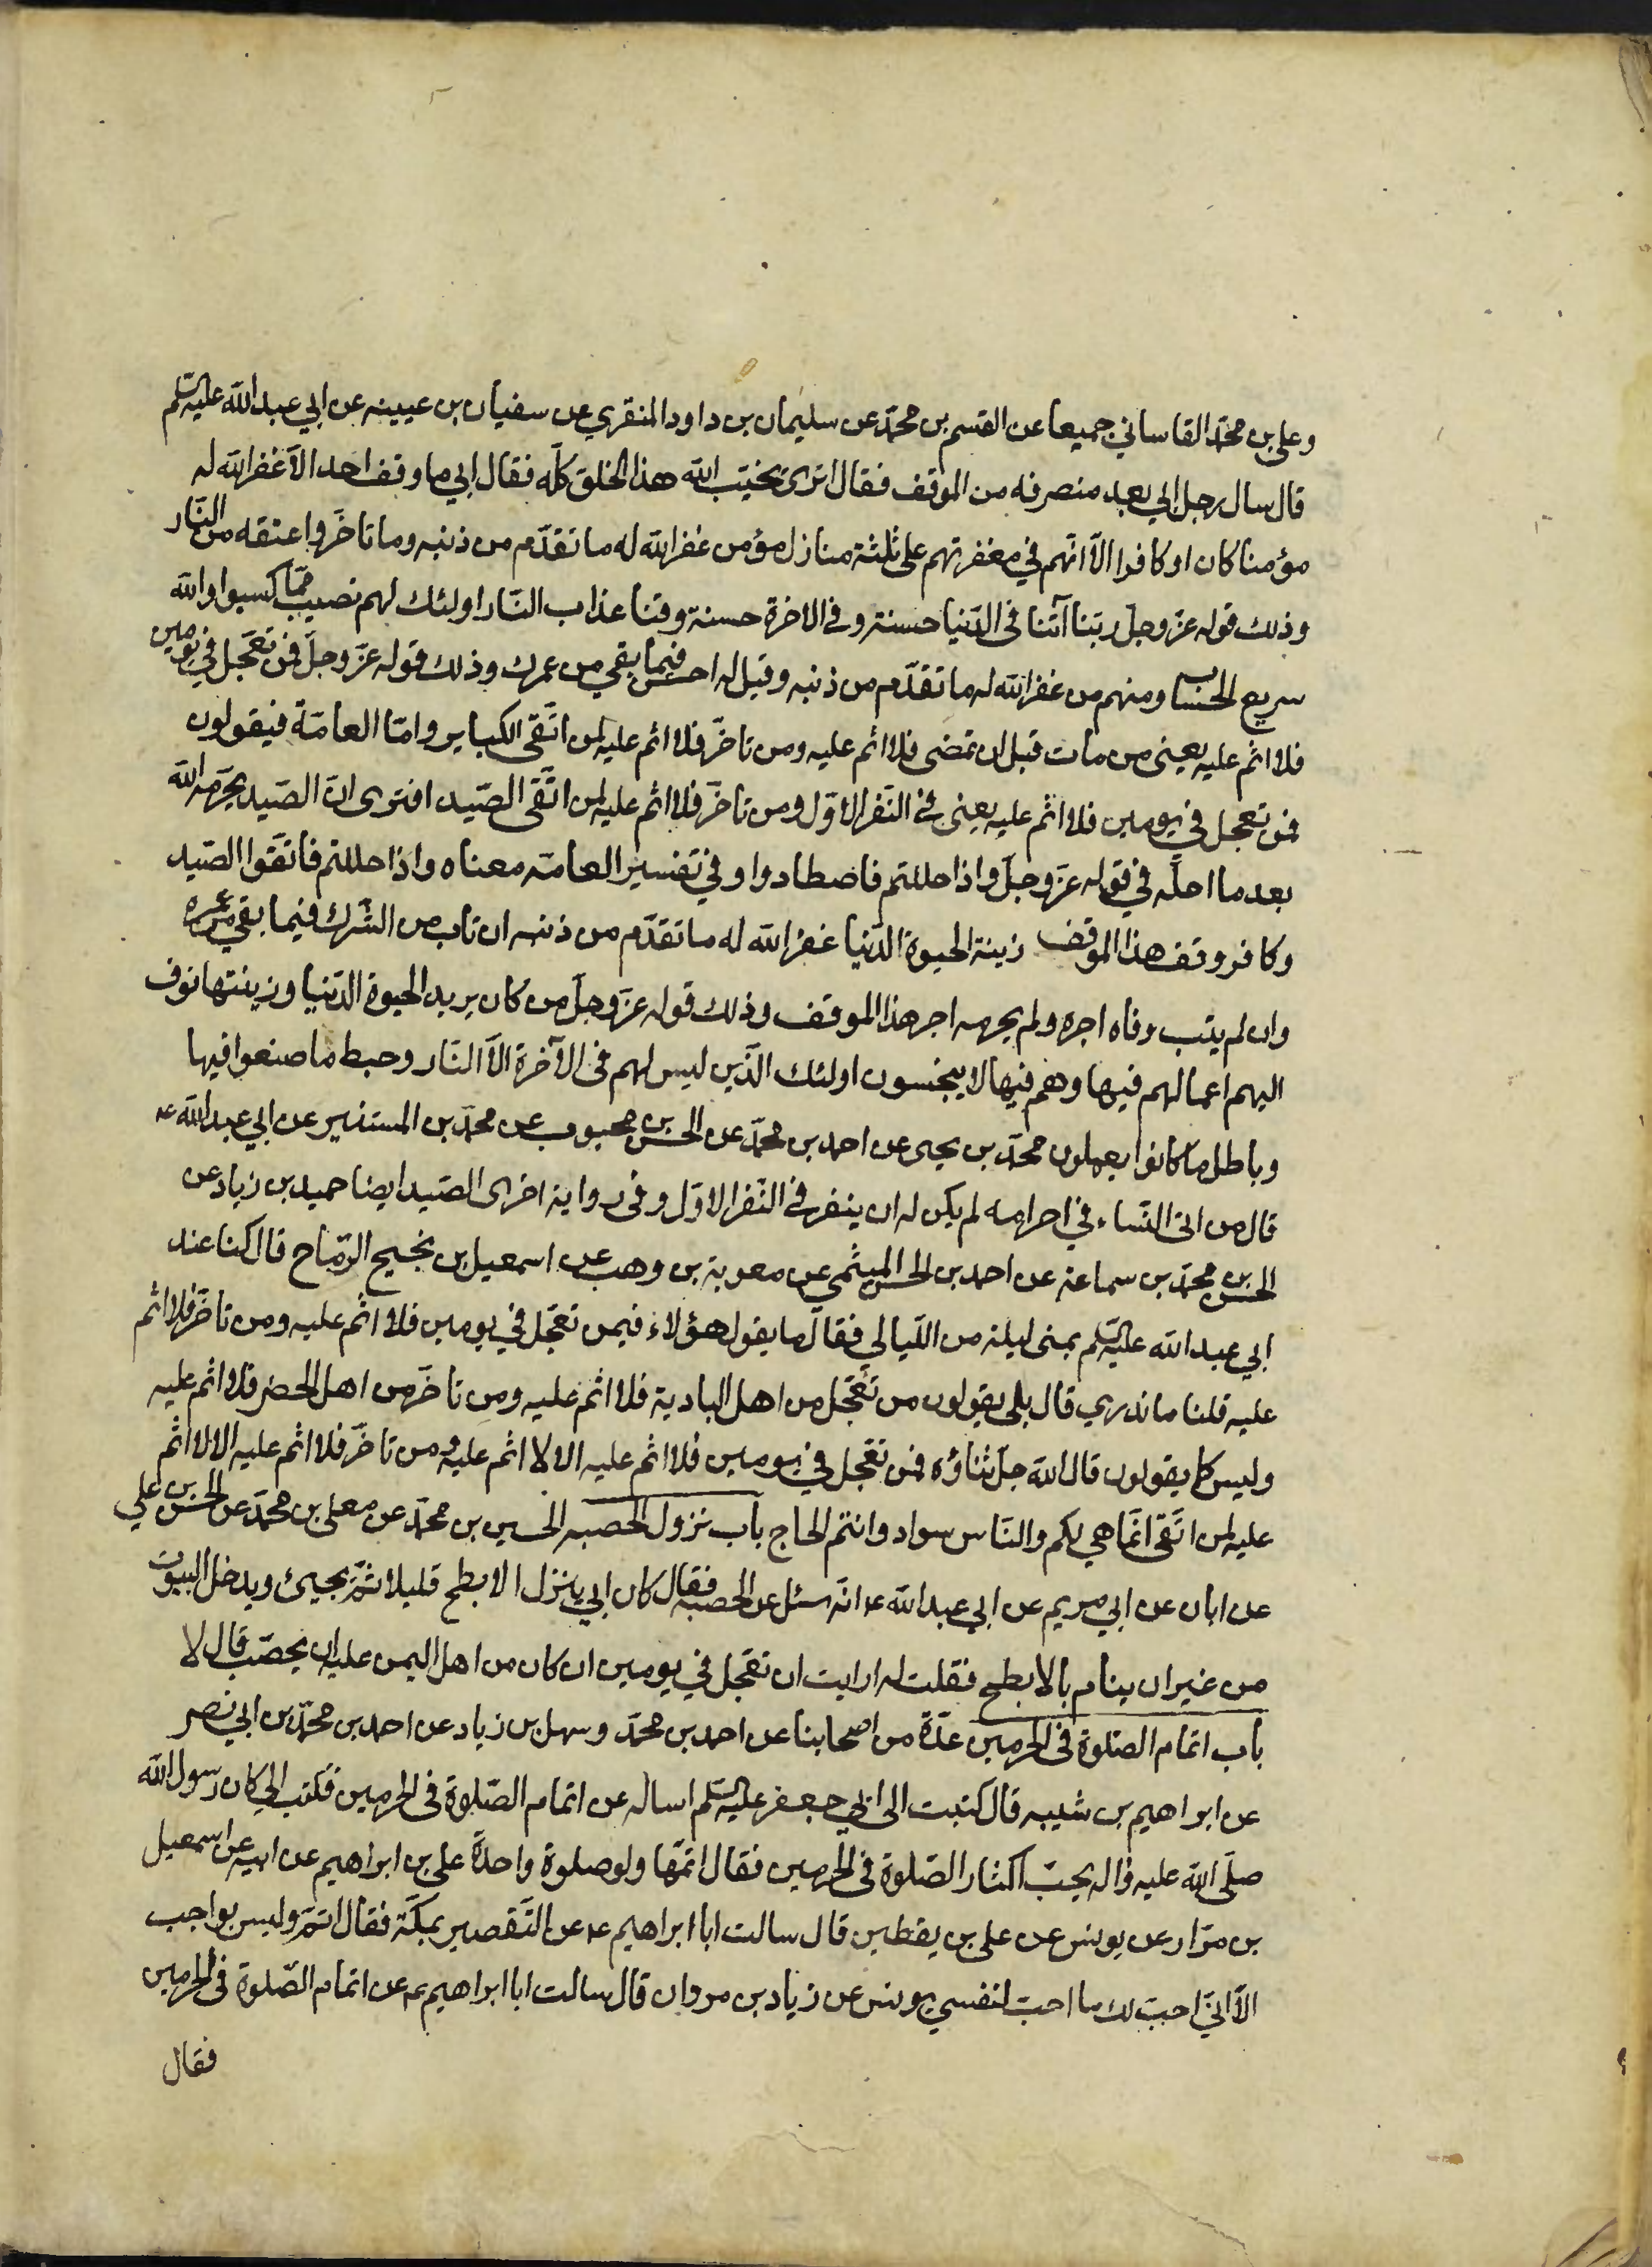 وعلي بن محمد القاساني جميعا عن القسم بن محمد عن سليمان بن داود المنقري عن سفيان بن عيينه عن ابي عبد الله عليه السلم
قال سال رجل ابي بعد منصرفه من الموقف فقال اترى يخيب الله هذا الخلق كله فقال ابي ما وقف احد الا غفر الله له
مؤمنا كان او كافرا الا انهم في مغفرتهم على ثلثة منازل مؤمن غفر الله له ما تقدم من ذنبه وما تاخر واعتقه من النار
وذلك قوله عز وجل ربنا آتنا في الدنيا حسنة وفي الاخرة حسنة وقنا عذاب النار اولئك لهم نصيب مما كسبوا والله
سريع الحساب ومنهم من غفر الله له ما تقدم من ذنبه وقيل له احسن فيما بقي من عمرك وذلك قوله عز وجل فمن تعجل في يومين
فلا اثم عليه يعني من مات قبل ان تمضى فلا اثم عليه ومن تاخر فلا اثم عليه لمن اتقى الكباير واما العامة فيقولون
فمن تعجل في يومين فلا اثم عليه يعني في النفر الاول ومن تاخر فلا اثم عليه لمن اتقى الصيد افترى ان الصيد يحرمه الله
بعد ما احله في قوله عز وجل واذا حللتم فاصطادوا وفي تفسير العامه معناه واذا حللتم فاتقوا الصيد
وكافر وقف هذا الموقف زينة الحيوة الدنيا غفر الله له ما تقدم من ذنبه ان تاب من الشرك فيما بقي من عمره
وان لم يتب وفاه اجره ولم يحرمه اجر هذا الموقف وذلك قوله عز وجل من كان يريد الحيوة الدنيا وزينتها نوف
اليهم اعمالهم فيها وهم فيها لا يبخسون اولئك الذين ليس لهم في الآخرة الا النار وحبط ما صنعوا فيها
وباطل ما كانوا يعملون محمد بن يحيى عن احمد بن محمد عن الحسن بن محبوب عن محمد بن المستنير عن ابي عبد الله عه
قال من اتى النساء في احرامه لم يكن له ان ينفر في النفر الاول وفي رواية اخرى الصيد ايضا حميد بن زياد عن
الحسن بن محمد بن سماعة عن احمد بن الحسن الميثمي عن معوية بن وهب عن اسمعيل بن نجيح الرماح قال كنا عند
ابي عبد الله عليه السلم بمنى ليلة من الليالي فقال ما يقول هؤلاء فيمن تعجل في يومين فلا اثم عليه ومن تاخر فلا اثم
عليه قلنا ما ندري قال بلى يقولون من تعجل من اهل البادية فلا اثم عليه ومن تاخر من اهل الحضر فلا اثم عليه
وليس كما يقولون قال الله جل ثناؤه فمن تعجل في يومين فلا اثم عليه الا لا اثم عليه ومن تاخر فلا اثم عليه الا لا اثم
عليه لمن اتقى انما هي لكم والناس سواد وانتم الحاج باب نزول الحصبه الحسين بن محمد عن معلى بن محمد عن الحسن بن علي
عن ابان عن ابي مريم عن ابي عبد الله عه انه سئل عن الحصبه فقال كان ابي ينزل الابطح قليلا ثم يجيئ ويدخل البيوت
من غير ان ينام بالابطح فقلت له ارايت ان تعجل في يومين ان كان من اهل اليمن عليه ان يحصب قال لا
باب اتمام الصلوة في الحرمين عدة من اصحابنا عن احمد بن محمد وسهل بن زياد عن احمد بن محمد بن ابي نصر
عن ابراهيم بن شيبه قال كتبت الى ابي جعفر عليه السلم اساله عن اتمام الصلوة في الحرمين فكتب الي كان رسول الله
صلى الله عليه واله يحب اكثار الصلوة في الحرمين فقال اتمها ولو صلوة واحدة علي بن ابراهيم عن ابيه عن اسمعيل
بن مرار عن يونس عن علي بن يقطين قال سالت ابا ابراهيم عه عن التقصير بمكة فقال اتم وليس بواجب
الا اني احب لك ما احب لنفسي يونس عن زياد بن مروان قال سالت ابا ابراهيم عه عن اتمام الصلوة في الحرمين
فقال